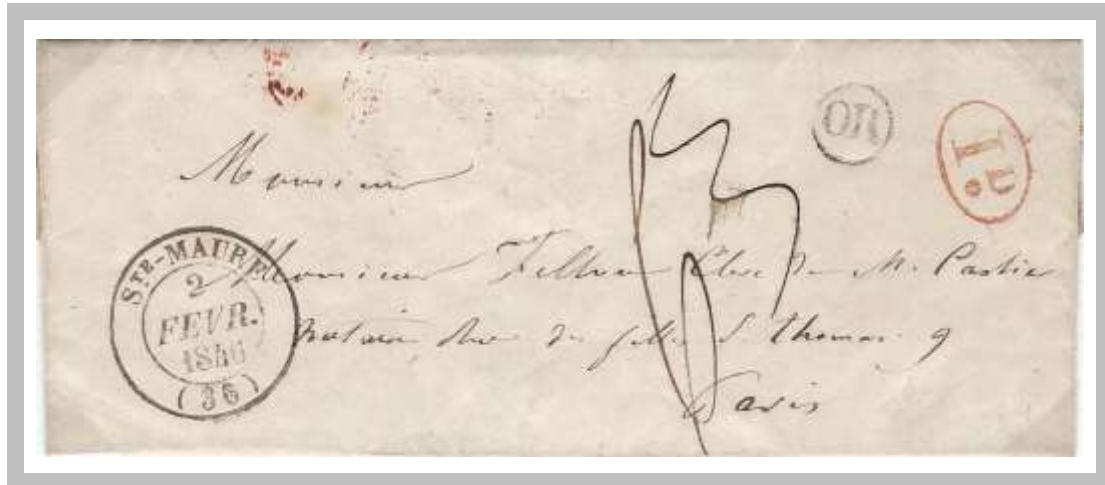 OR
1D
Monsieur
Monsieur Clerc de M. Pastier
notaire Rue des filles St thomas 9
Paris
STE-MAURE
2
FEVR.
1846
(36)